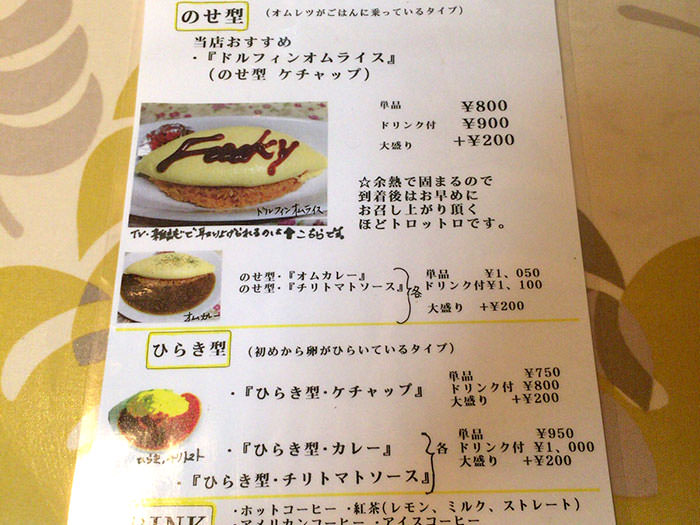 のせ型 (オムレツがごはんに乗っているタイプ)
当店おすすめ
・『ドルフィンオムライス』
(のせ型 ケチャップ)
単品 ¥800
ドリンク付 ¥900
大盛り +¥200
Fooky
ドルフィンオムライス
☆余熱で固まるので
到着後はお早めに
お召し上がり頂く
ほどトロットロです。
TV・雑誌で取り上げられるのは↑こちらです。
のせ型・『オムカレー』
のせ型・『チリトマトソース』
各
単品 ¥1、050
ドリンク付¥1、100
大盛り +¥200
オムカレー
ひらき型 (初めから卵がひらいているタイプ)
・『ひらき型・ケチャップ』
単品 ¥750
ドリンク付 ¥800
大盛り +¥200
・『ひらき型・カレー』
・『ひらき型・チリトマトソース』
各
単品 ¥950
ドリンク付 ¥1、000
大盛り +¥200
DRINK
・ホットコーヒー ・紅茶(レモン、ミルク、ストレート)
・アメリカンコーヒー ・アイスコーヒー